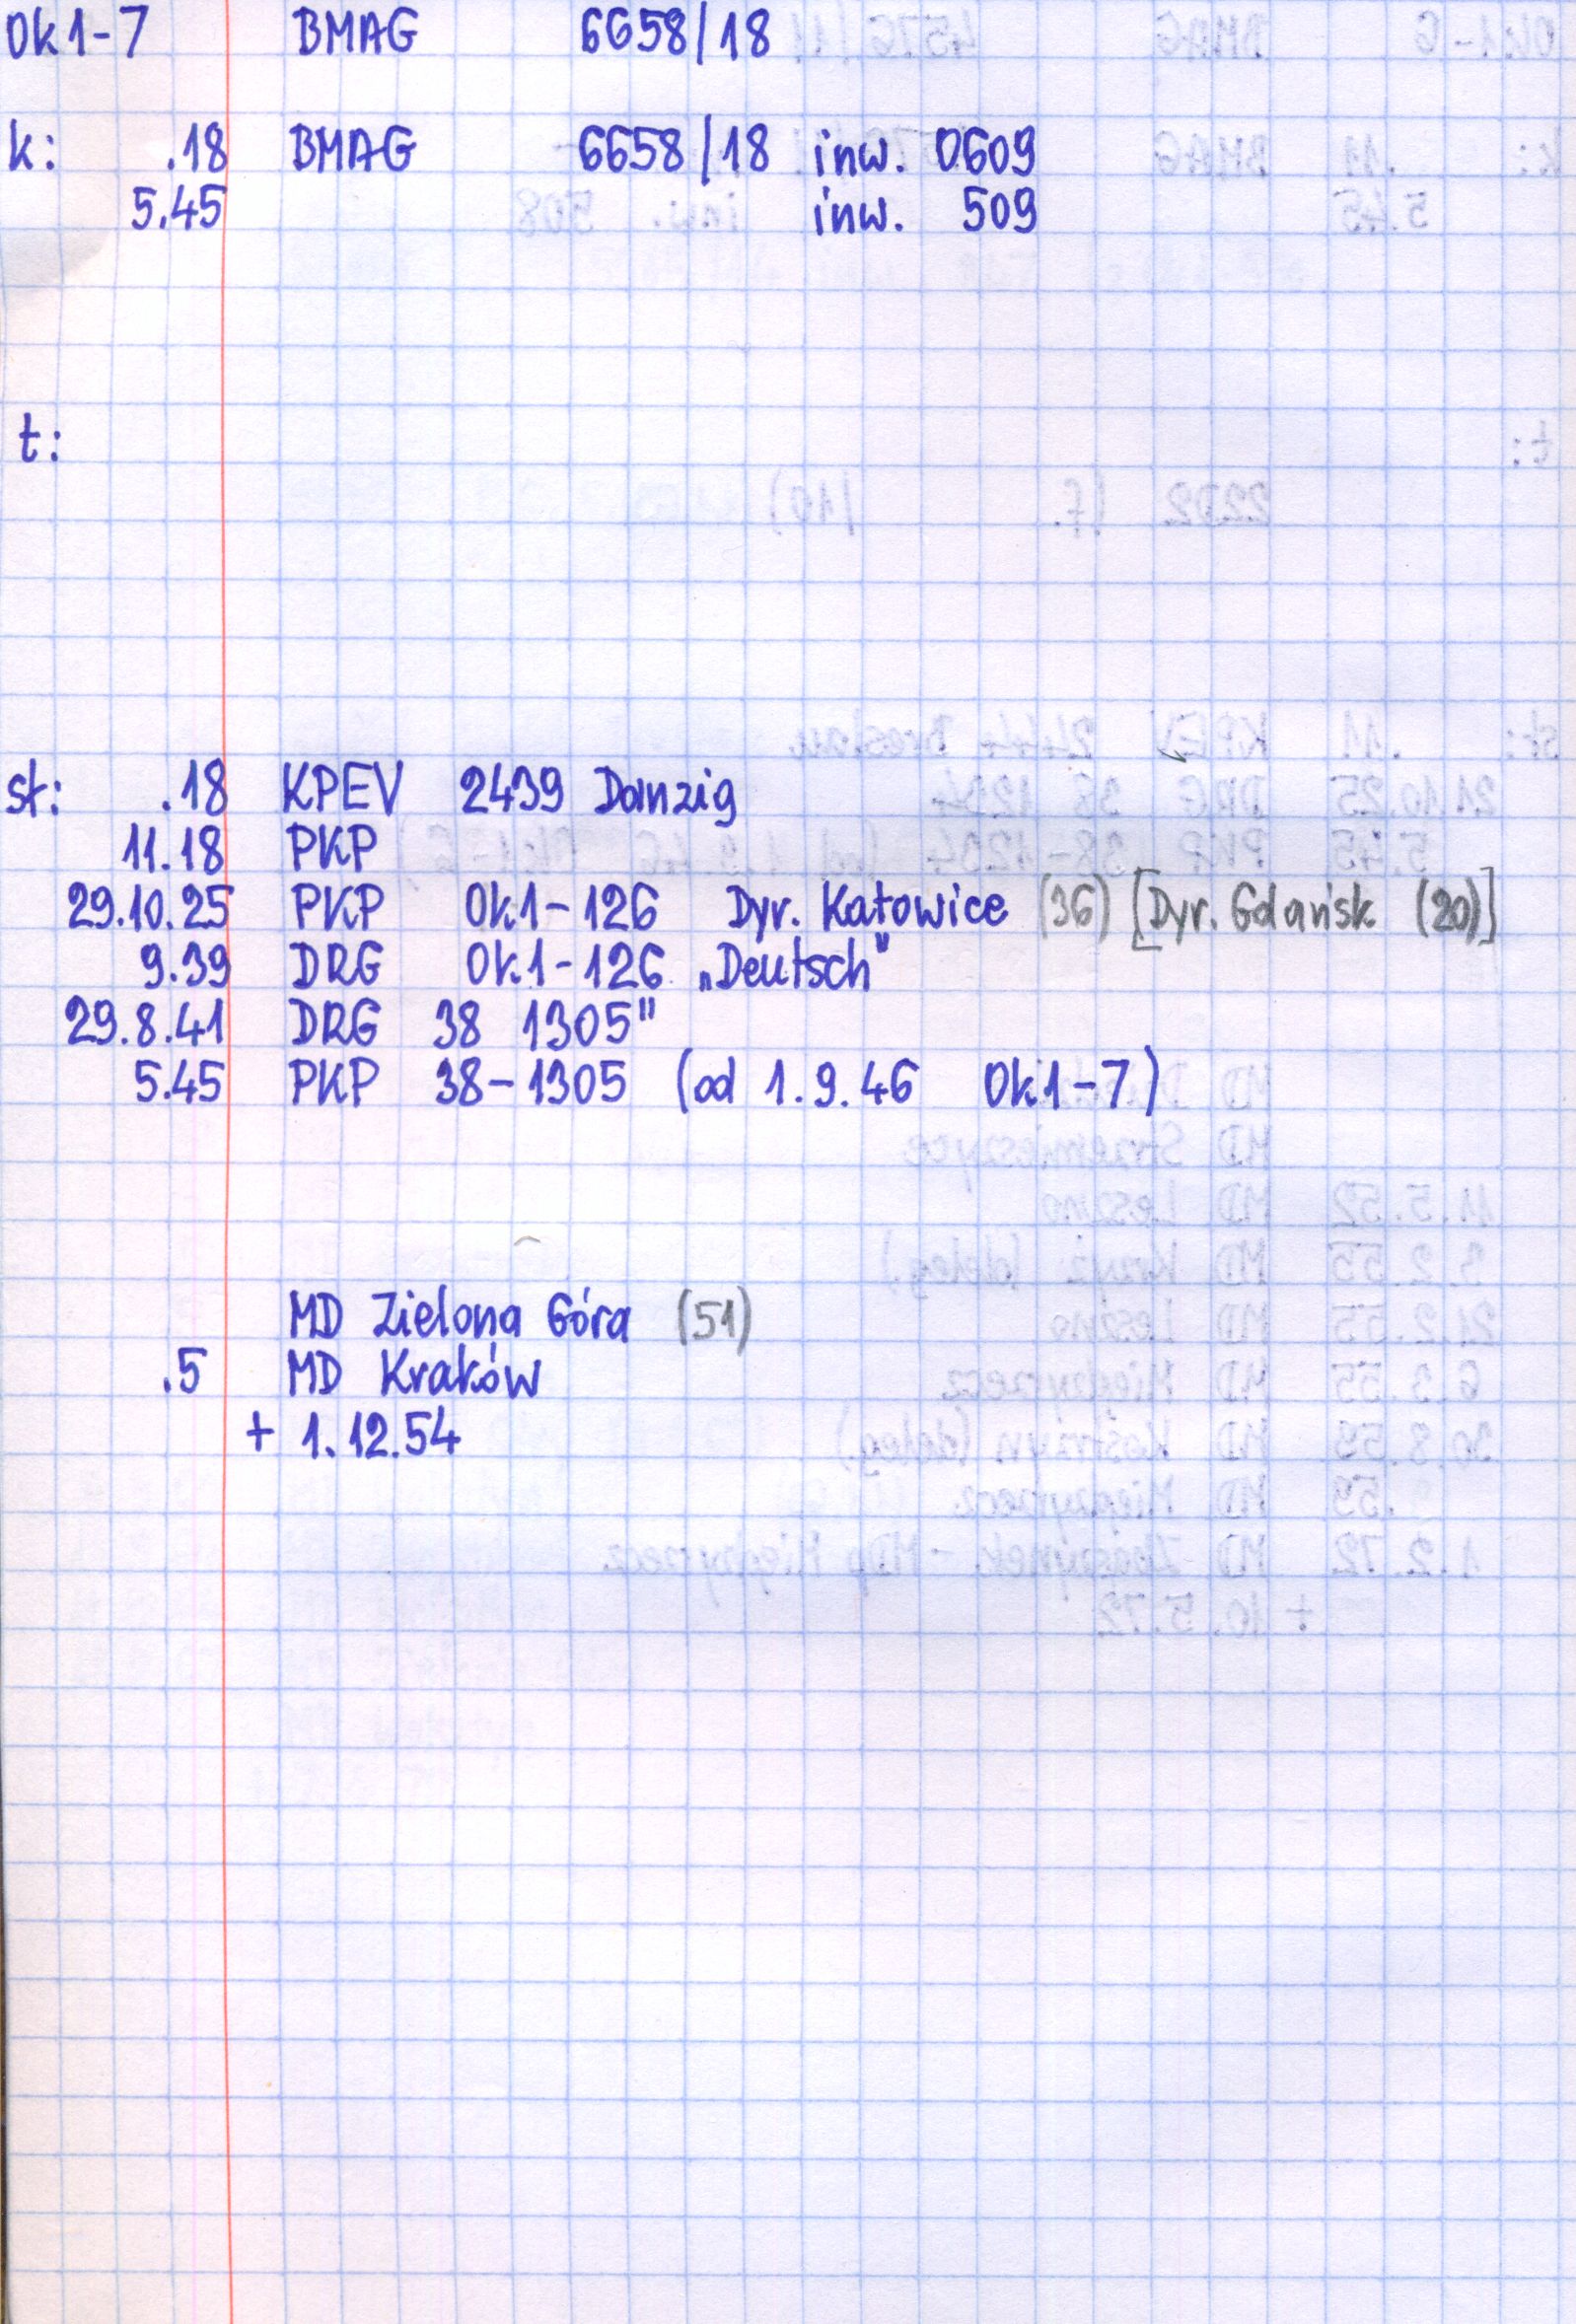 Ok1-7 BMAG 6658/18
k: .18 BMAG 6658/18 inw. 0609
5.45 inw. 509
t:
st: .18 KPEV 2439 Danzig
11.18 PKP
29.10.25 PKP Ok1-126 Dyr. Katowice (36) [Dyr. Gdańsk (20)]
9.39 DRG Ok1-126 „Deutsch"
29.8.41 DRG 38 1305"
5.45 PKP 38-1305 (od 1.9.46 Ok1-7)
MD Zielona Góra (51)
.5 MD Kraków
+ 1.12.54